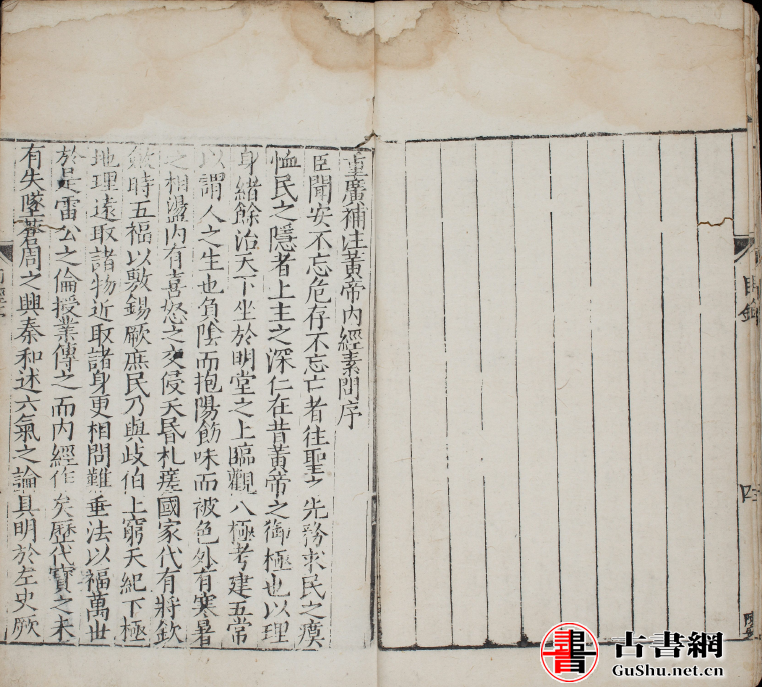 重廣補注黃帝內經素問序
臣聞安不忘危存不忘亡者往聖之先務求民之瘼
恤民之隱者上主之深仁在昔黃帝之御極也以理
身緒餘治天下坐於明堂之上臨觀八極考建五常
以謂人之生也負陰而抱陽食味而被色外有寒暑
之相盪內有喜怒之交侵夭昏札瘥國家代有將欽
斂時五福以敷錫厥庶民乃與歧伯上窮天紀下極
地理遠取諸物近取諸身更相問難垂法以福萬世
於是雷公之倫授業傳之而內經作矣歷代寶之未
有失墜蒼周之興秦和述六氣之論具明於左史厥
目錄
書
古書網
GuShu.net.cn